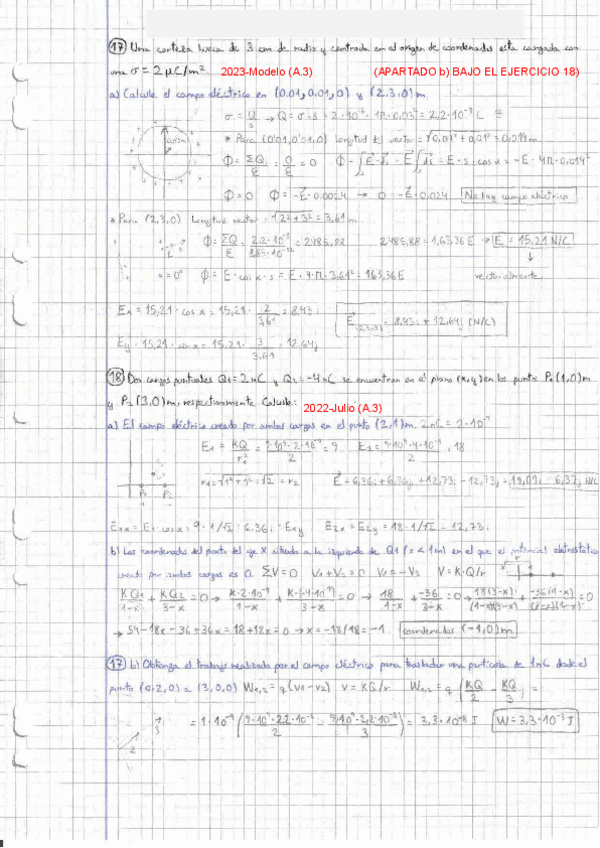 17) Una corteza hueca de 3 cm de radio y centrada en el origen de coordenadas está cargada con
una σ = 2 μC/m². 2023-Modelo (A.3) (APARTADO b) BAJO EL EJERCICIO 18)
a) Calcule el campo eléctrico en (0.01, 0.01, 0) y (2,3,0) m.
Q = σ·s = 2·10⁻⁶·4π·0.03² = 2,2·10⁻⁸ C
* Para (0'01, 0'01, 0) longitud vector = √0,01² + 0,01² = 0,014 m
Φ = ΣQi/ε = 0/ε = 0
Φ = 0 0 = -E·0.0024 No hay campo eléctrico
* Para (2,3,0) Longitud vector = √2² + 3² = 3.61 m
Φ = ΣQ/ε = 2,2·10⁻⁸/8,85·10⁻¹² = 2485,88 2485,88 = 163,36 E → E = 15,21 N/C
α = 0° Φ = E·cos α·s = E·4·π·3.61² = 163,36 E vectorialmente
Ex = 15,21·cos α = 15,21· 2/3,61 = 8,43 i
E(2,3,0) = 8,43 i + 12,64 j (N/C)
Ey = 15,21·sen α = 15,21· 3/3.61 = 12.64 j
18) Dos cargas puntuales Q1 = 2 nC y Q2 = -4 nC se encuentran en el plano (x,y) en los puntos P1 (1,0) m
y P2 (3,0) m, respectivamente. Calcule: 2022-Julio (A.3)
a) El campo eléctrico creado por ambas cargas en el punto (2,1) m. 2nC = 2·10⁻⁹
E1 = KQ/r1² = 9·10⁹·2·10⁻⁹/2 = 9 E2 = 9·10⁹·4·10⁻⁹/2 = 18
r1 = √1² + 1² = √2 = r2 E = 6,36 i + 6,36 j + 12,73 i - 12,73 j = 19,09 i - 6,37 j N/C
P1 P2
E1x = E1·cos α = 9·1/√2 = 6.36 i = E1y E2x = E2y = 18·1/√2 = 12,73 i
b) Las coordenadas del punto del eje X situado a la izquierda de Q1 (x < 1m) en el que el potencial eletrostático
creado por ambas cargas es 0. ΣV = 0 V1 + V2 = 0 V1 = -V2 V = K·Q/r
KQ1/1-x + KQ2/3-x = 0 → K·2·10⁻⁹/1-x + K·(-4·10⁻⁹)/3-x = 0 → 18/1-x + -36/3-x = 0 → 18(3-x)/(1-x)(3-x) + -36(1-x)/(3-x)(1-x) = 0
→ 54 - 18x - 36 + 36x = 18 + 18x = 0 → x = -18/18 = -1 coordenadas (-1,0) m
17) b) Obtenga el trabajo realizado por el campo eléctrico para trasladar una partícula de 1nC desde el
punto (0,2,0) a (3,0,0) W1,2 = q (V1 - V2) V = KQ/r W1,2 = q (KQ/2 - KQ/3) =
= 1·10⁻⁹ (9·10⁹·2,2·10⁻⁸/2 - 9·10⁹·2,2·10⁻⁸/3) = 3,3·10⁻⁸ J W = 3,3·10⁻⁸ J